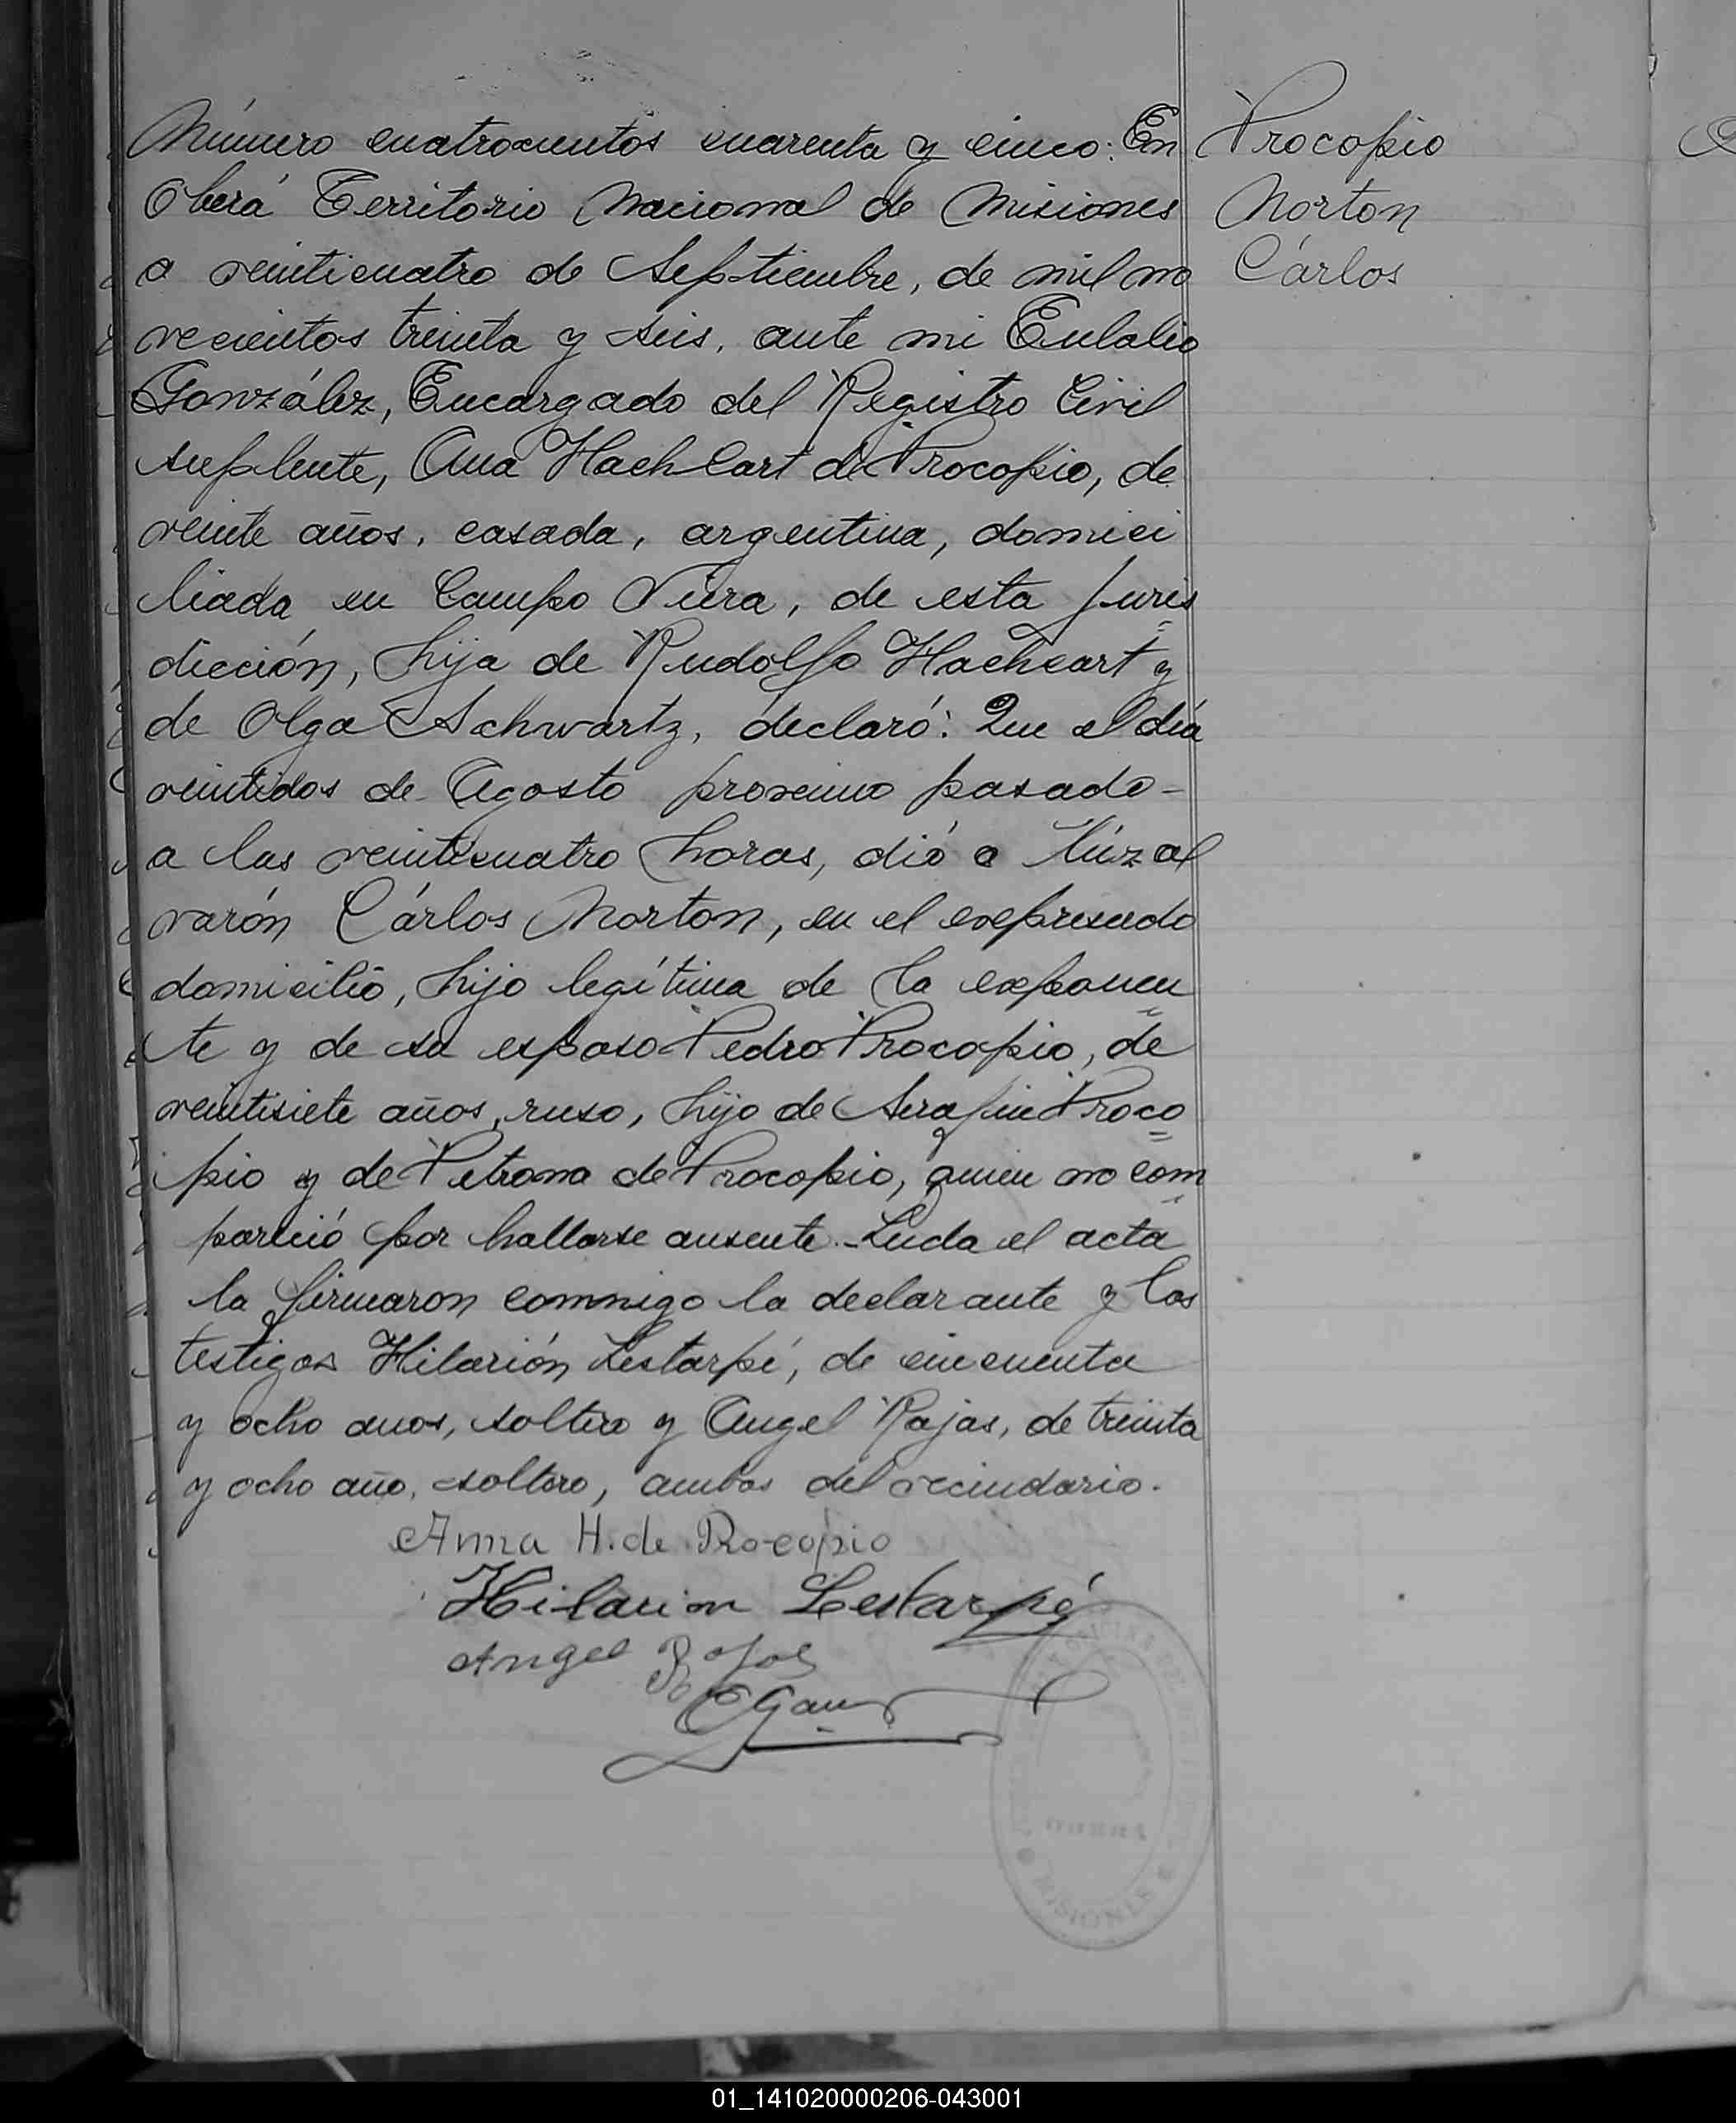 Número cuatrocientos cuarenta y cinco: En
Oberá Territorio Nacional de Misiones
a veinticuatro de Septiembre, de mil no
vecientos treinta y seis, ante mi Eulalio
González, Encargado del Registro Civil
suplente, Ana Hachcart de Procopio, de
veinte años, casada, argentina, domici
liada en Campo Viera, de esta juris
dicción, hija de Rudolfo Hachcart y
de Olga Schwartz, declaró: Que el dia
veintidos de Agosto proximo pasado-
a las veinticuatro horas, dió a lúz al
varón Cárlos Norton, en el expresado
domicilio, hijo legítima de la exponen
te y de su esposo Pedro Procopio, de
veintisiete años, ruso, hijo de Serafin Proco
pio y de Petrona de Procopio, quien no com
pareció por hallarse ausente.- Leida el acta
la firmaron conmigo la declarante y los
testigos Hilarión Lestarpé, de cincuenta
y ocho anos, soltero y Angel Rajas, de treinta
y ocho año, soltero, ambos del vecindario.
Anna H. de Procopio
Hilarion Lestarpé
Angel Rojas
EGonz
Procopio
Norton
Cárlos
MISIONES
01_141020000206-043001